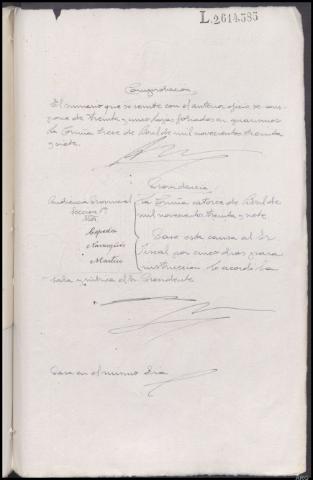 L.2614,585
Comprobación,
El sumario que se remite con el anterior oficio se com-
pone de treinta y cinco hojas foliadas en guarismos
La Coruña trece de Abril de mil novecientos treinta
y siete.
Providencia,
Audiencia Provincial
Sección 1ª
Sres
Cepeda
Navarro
Martín
La Coruña catorce de Abril de
mil novecientos treinta y siete
Pase esta causa al Sr
Fiscal por cinco días para
instrucción. Lo acordó la
Sala y rubrica el Sr Presidente
Pasa en el mismo día